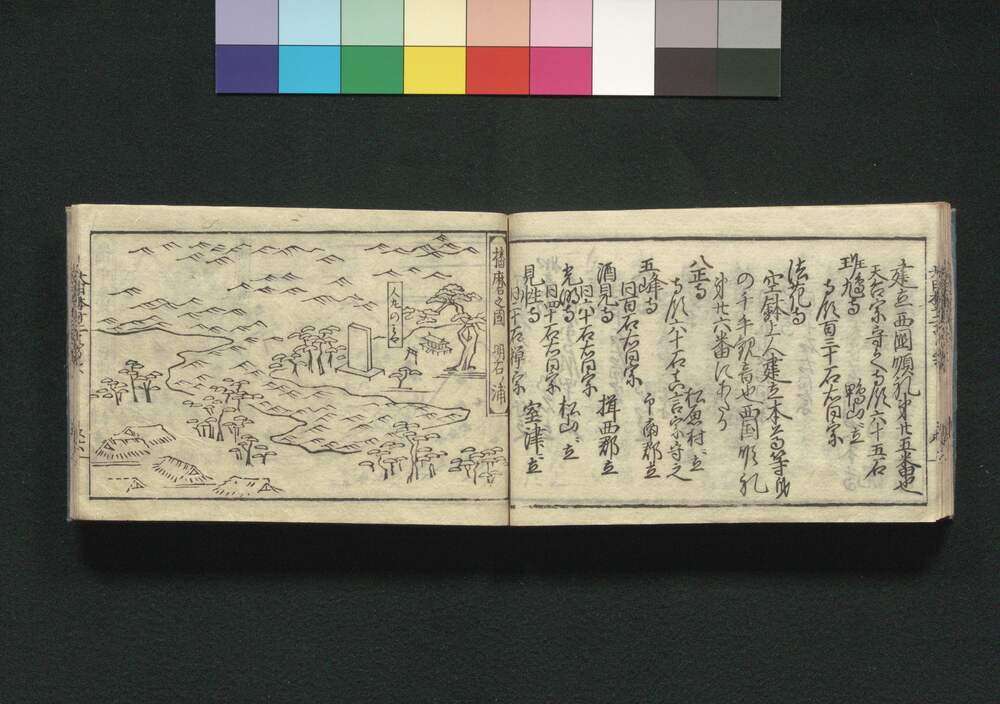 建立西國順礼第廿五番也
天台宗守也寺領六十五石
班鳩寺　鴨山ニ立
寺領百三十石右同宗
法花寺
空鉢上人建立本尊等身
の千手観音也西国順礼
第廿六番にあたる
八正寺　松原村ニ立
寺領八十石真言宗守之
五峰寺　印南郡立
同百石右同宗
酒見寺　揖西郡立
同三十石右同宗
光明寺　松山ニ立
同四十石右同宗
見性寺　室津立
同二十石禅宗
播磨之國　明石浦
人丸の石